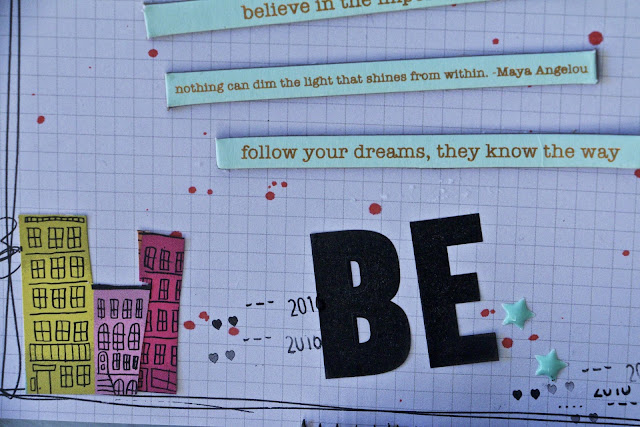 believe in the
nothing can dim the light that shines from within. -Maya Angelou
follow your dreams, they know the way
BE
2010
2010
2010